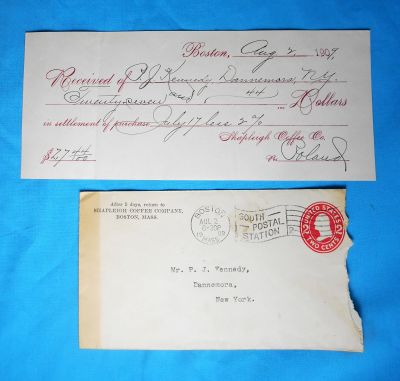 Boston, Aug 2, 1909.
Received of P. J. Kennedy, Dannemora, N.Y.
Twenty-seven and 44 Dollars
in settlement of purchase July 17 less 2%
Shapleigh Coffee Co.
$27 44/100 Poland
After 5 days, return to
SHAPLEIGH COFFEE COMPANY,
BOSTON, MASS.
BOSTON
AUG 2
6-30P
1909
MASS.
SOUTH
POSTAL
STATION
UNITED STATES
TWO CENTS
Mr. P. J. Kennedy,
Dannemora,
New York.